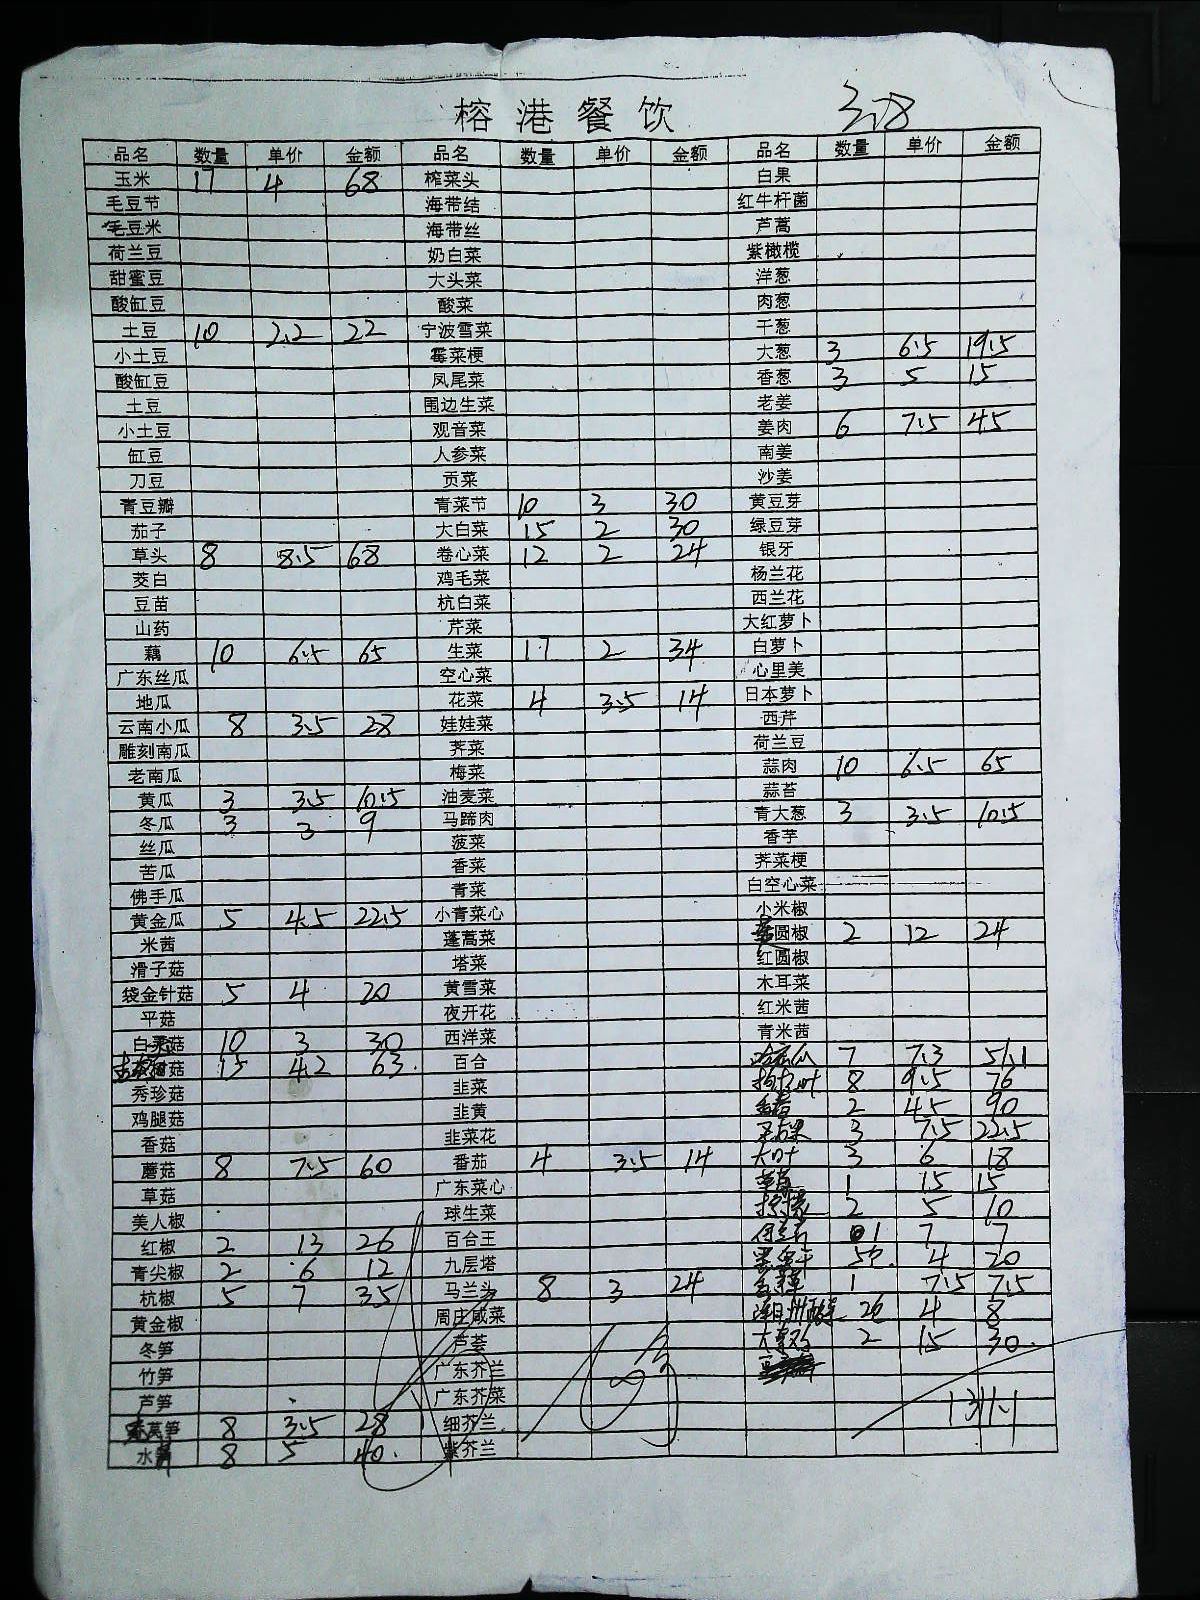 榕港餐饮 3.18
品名 数量 单价 金额 品名 数量 单价 金额 品名 数量 单价 金额
玉米 17 4 68 榨菜头 白果
毛豆节 海带结 红牛杆菌
毛豆米 海带丝 芦蒿
荷兰豆 奶白菜 紫橄榄
甜蜜豆 大头菜 洋葱
酸缸豆 酸菜 肉葱
土豆 10 2.2 22 宁波雪菜 干葱
小土豆 霉菜梗 大葱 3 6.5 19.5
酸缸豆 凤尾菜 香葱 3 5 15
土豆 围边生菜 老姜
小土豆 观音菜 姜肉 6 7.5 45
缸豆 人参菜 南姜
刀豆 贡菜 沙姜
青豆瓣 青菜节 10 3 30 黄豆芽
茄子 大白菜 15 2 30 绿豆芽
草头 8 8.5 68 卷心菜 12 2 24 银牙
茭白 鸡毛菜 杨兰花
豆苗 杭白菜 西兰花
山药 芹菜 大红萝卜
藕 10 6.5 65 生菜 17 2 34 白萝卜
广东丝瓜 空心菜 心里美
地瓜 花菜 4 3.5 14 日本萝卜
云南小瓜 8 3.5 28 娃娃菜 西芹
雕刻南瓜 荠菜 荷兰豆
老南瓜 梅菜 蒜肉 10 6.5 65
黄瓜 3 3.5 10.5 油麦菜 蒜苔
冬瓜 3 3 9 马蹄肉 青大葱 3 3.5 10.5
丝瓜 菠菜 香芋
苦瓜 香菜 荠菜梗
佛手瓜 青菜 白空心菜
黄金瓜 5 4.5 22.5 小青菜心 小米椒
米茜 蓬蒿菜 圆椒 2 12 24
滑子菇 塔菜 红圆椒
袋金针菇 5 4 20 黄雪菜 木耳菜
平菇 夜开花 红米茜
白灵菇 10 3 30 西洋菜 青米茜
菇 15 4.2 63. 百合 哈密瓜 7 7.3 51.1
秀珍菇 韭菜 8 9.5 76
鸡腿菇 韭黄 2 45 90
香菇 韭菜花 3 7.5 22.5
蘑菇 8 7.5 60 番茄 4 3.5 14 大叶 3 6 18
草菇 广东菜心 1 15 15
美人椒 球生菜 柠檬 2 5 10
红椒 2 13 26 百合王 1 7 7
青尖椒 2 6 12 九层塔 4 20
杭椒 5 7 35 马兰头 8 3 24 1 7.5 7.5
黄金椒 周庄咸菜 酸菜 4 8
冬笋 芦荟 2 15 30.
竹笋 广东芥兰
芦笋 广东芥菜 1311.1
莴笋 8 3.5 28 细芥兰
水 8 5 40. 紫芥兰